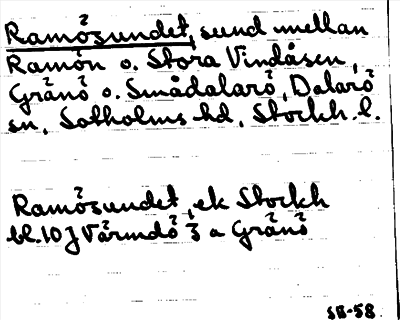 Ramösundet, sund mellan
Ramön o. Stora Vindåsen,
Gränö o. Smådalarö, Dalarö
sn, Sotholms hd, Stockh. l.
Ramösundet, ek Stockh
bl. 10 J Värmdö 3 a Gränö
SB-58